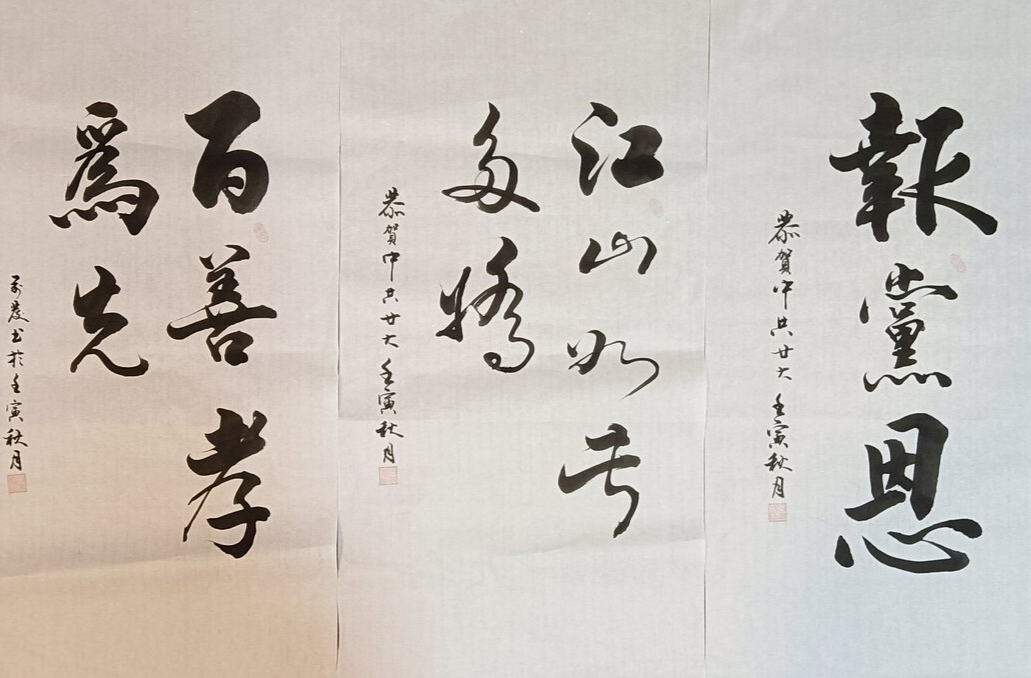 報黨恩
恭賀中共廿大 壬寅秋月
江山如此
多嬌
恭賀中共廿大 壬寅秋月
百善孝
爲先
书於壬寅秋月